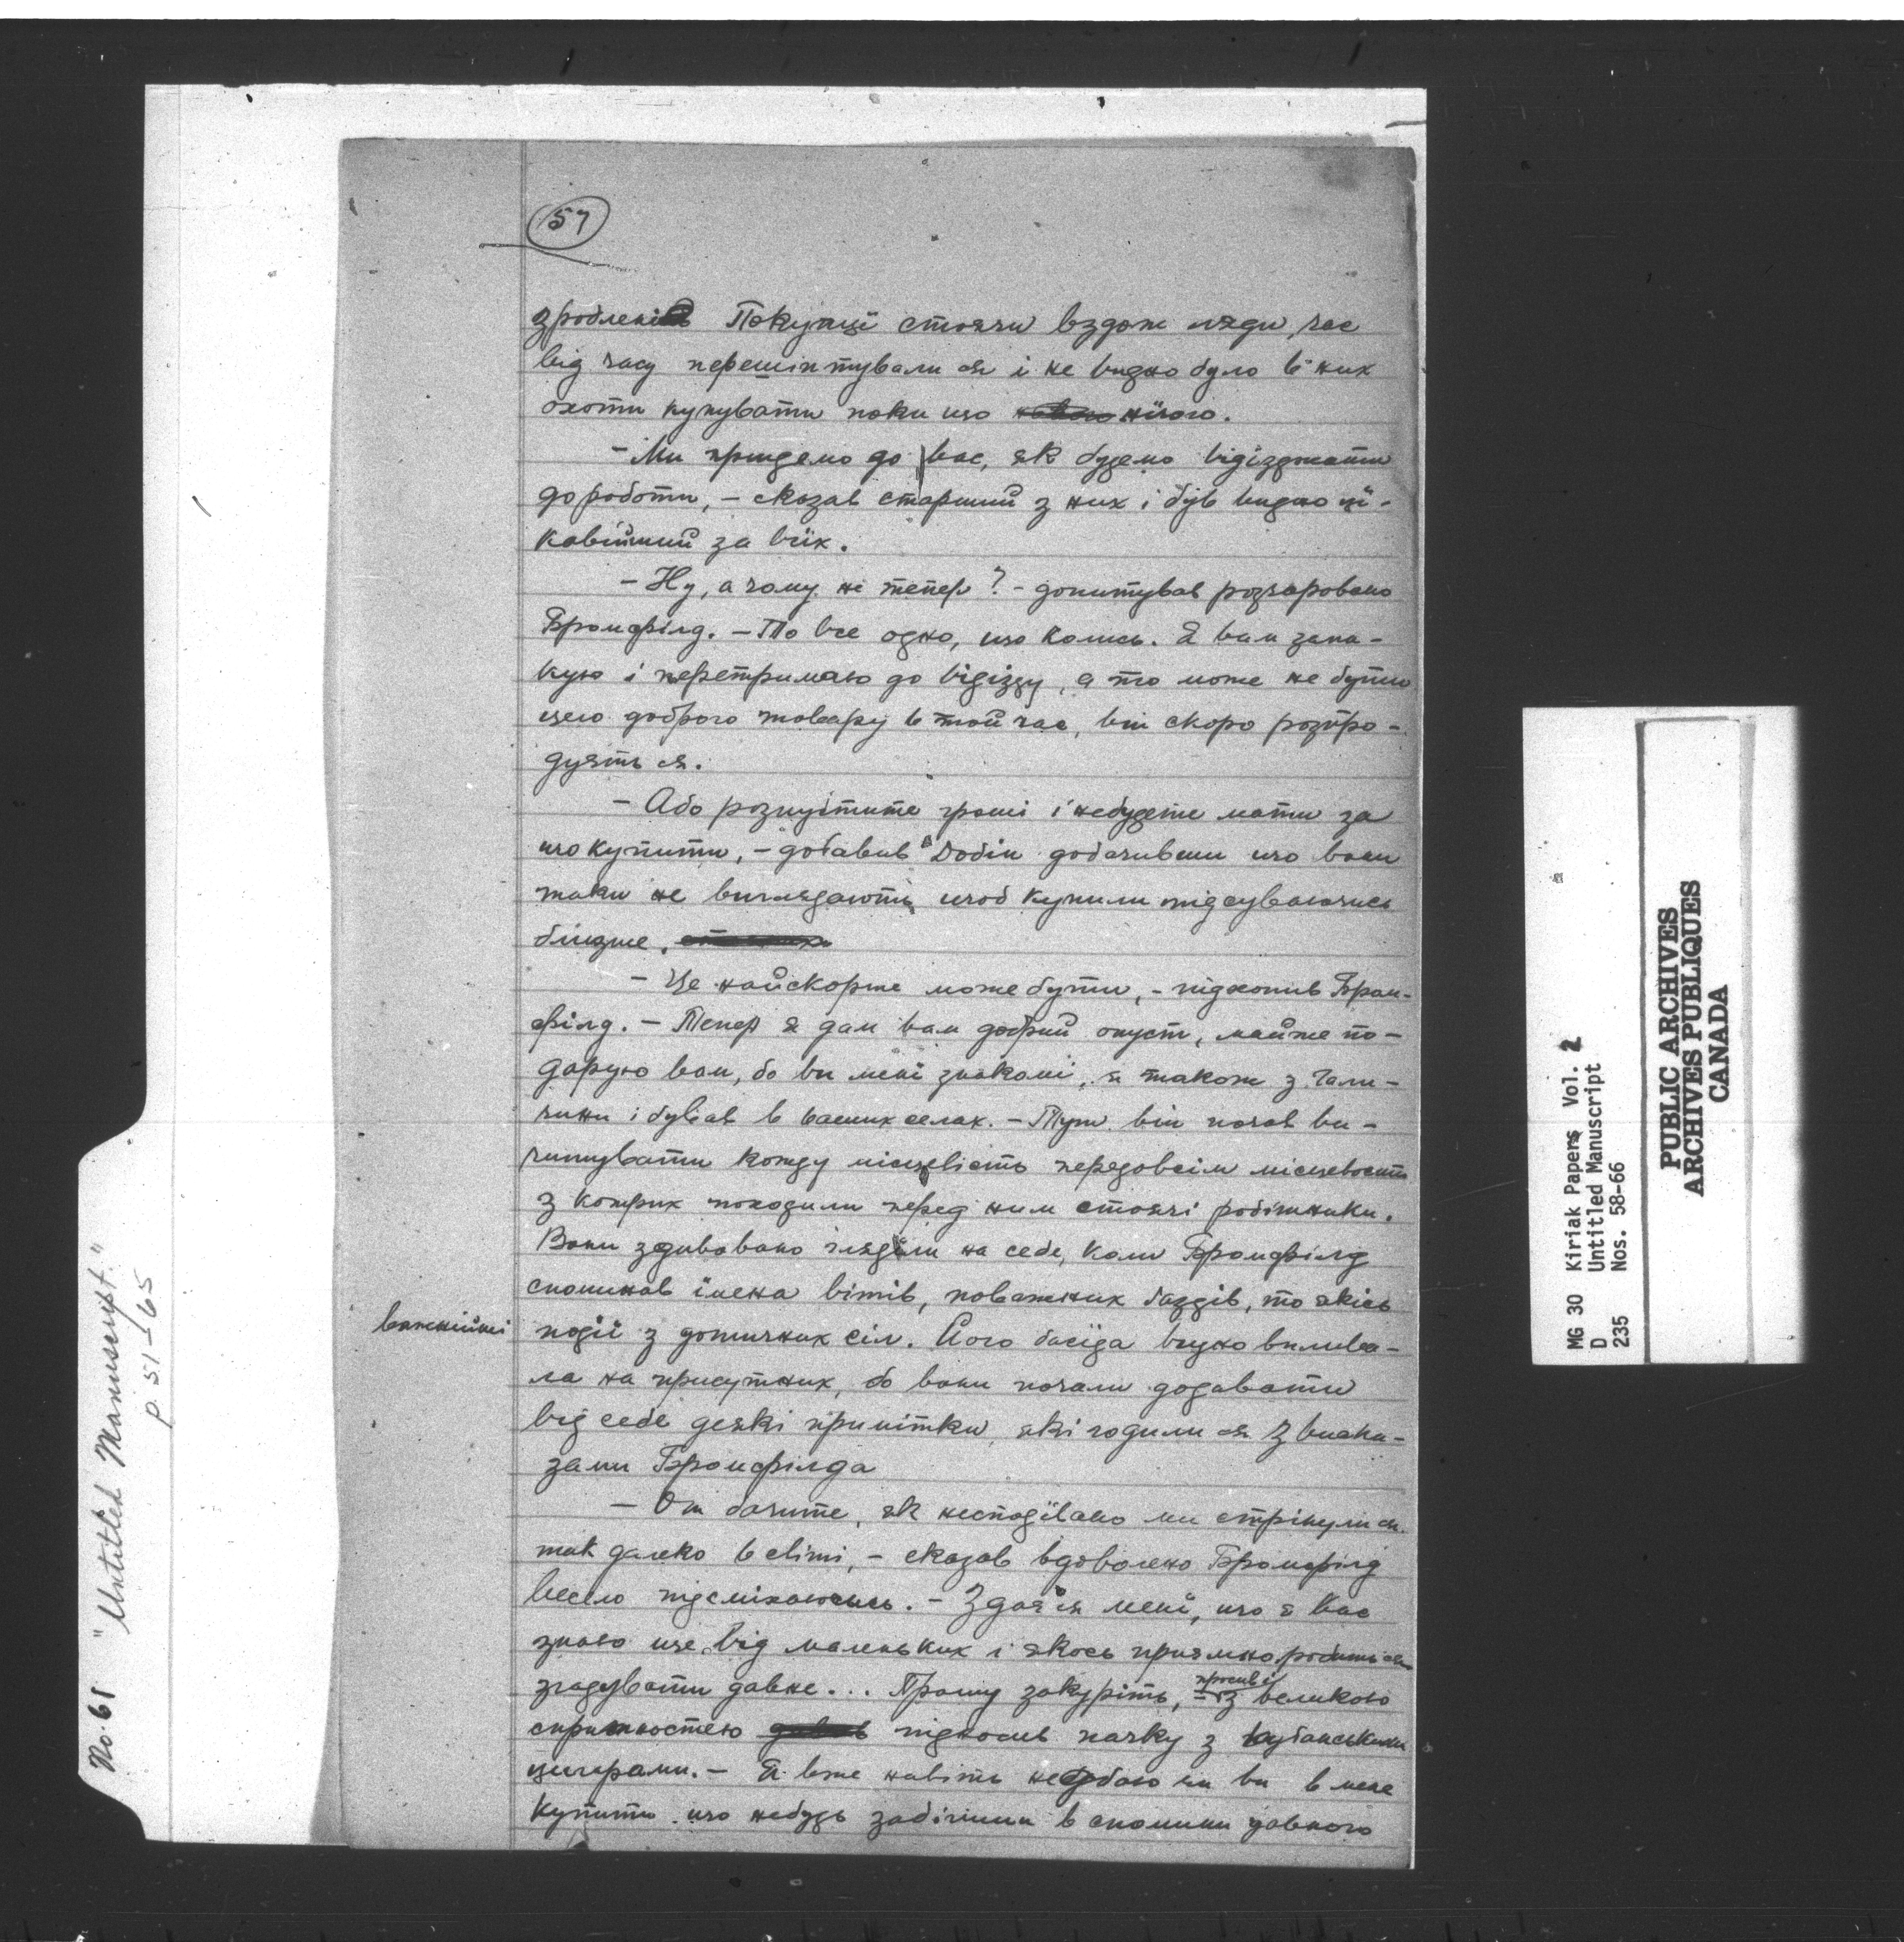 57
зроблені Покупці стоячи вздож ляди, час
від часу перешіптували ся і не видно було в них
охоти купувати поки що нічого.
— Ми прийдемо до вас, як будемо відїзджати
до роботи, — сказав старший з них і був видно ці-
кавійший за всїх.
— Ну, а чому нї тепер? — допитував розчаровано
Бромфілд. — То все одно, що колись. Я вам запа-
кую і перетримаю до відїзду, а то може не бути
цего доброго товару в той час, він скоро розпро-
дуять ся.
— Або розпустите гроші і небудете мати за
що купити, — добавив Добін добачивши що вони
таки не виглядають щоб купили підсуваючись
близше.
— Це найскорше може бути, — підхопив Бром-
філд. — Тепер я дам вам добрий опуст, майже по-
дарую вам, бо ви менї знакомі, я також з Гали-
чини і бував в ваших селах. — Тут він почав ви-
читувати кожду місцевість передовсїм місцевости
з котрих походили перед ним стоячі робітники.
Вони здивовано глядїли на себе, коли Бромфілд
споминав імена вітів, поважних ґаздів, то якісь
важнійші
події з дотичних сіл. Його бесїда видно вплива-
ла на присутних, бо вони почали додавати
від себе деякі примітки, які годили ся з виска-
зами Бромфілда
— От бачите, як несподївано ми стрінули ся
так далеко в світі, — сказав вдоволено Бромфілд
весело підсміхаючись. — Здаєся менї, що я вас
знаю ще від маленьких і якось приємно робить ся
згадувати давне... Прошу закуріть, — просив і
з великою
спритностею підносив пачку з кубанськими
цигарами. — Я вже навіть недбаю чи ви в мене
купите що небудь забігши в спомини давного
No. 65 "Untitled Manuscript."
p. 51-65
MG 30 Kiriak Papers Vol. 2
D Untitled Manuscript
235 Nos. 58-66
PUBLIC ARCHIVES
ARCHIVES PUBLIQUES
CANADA